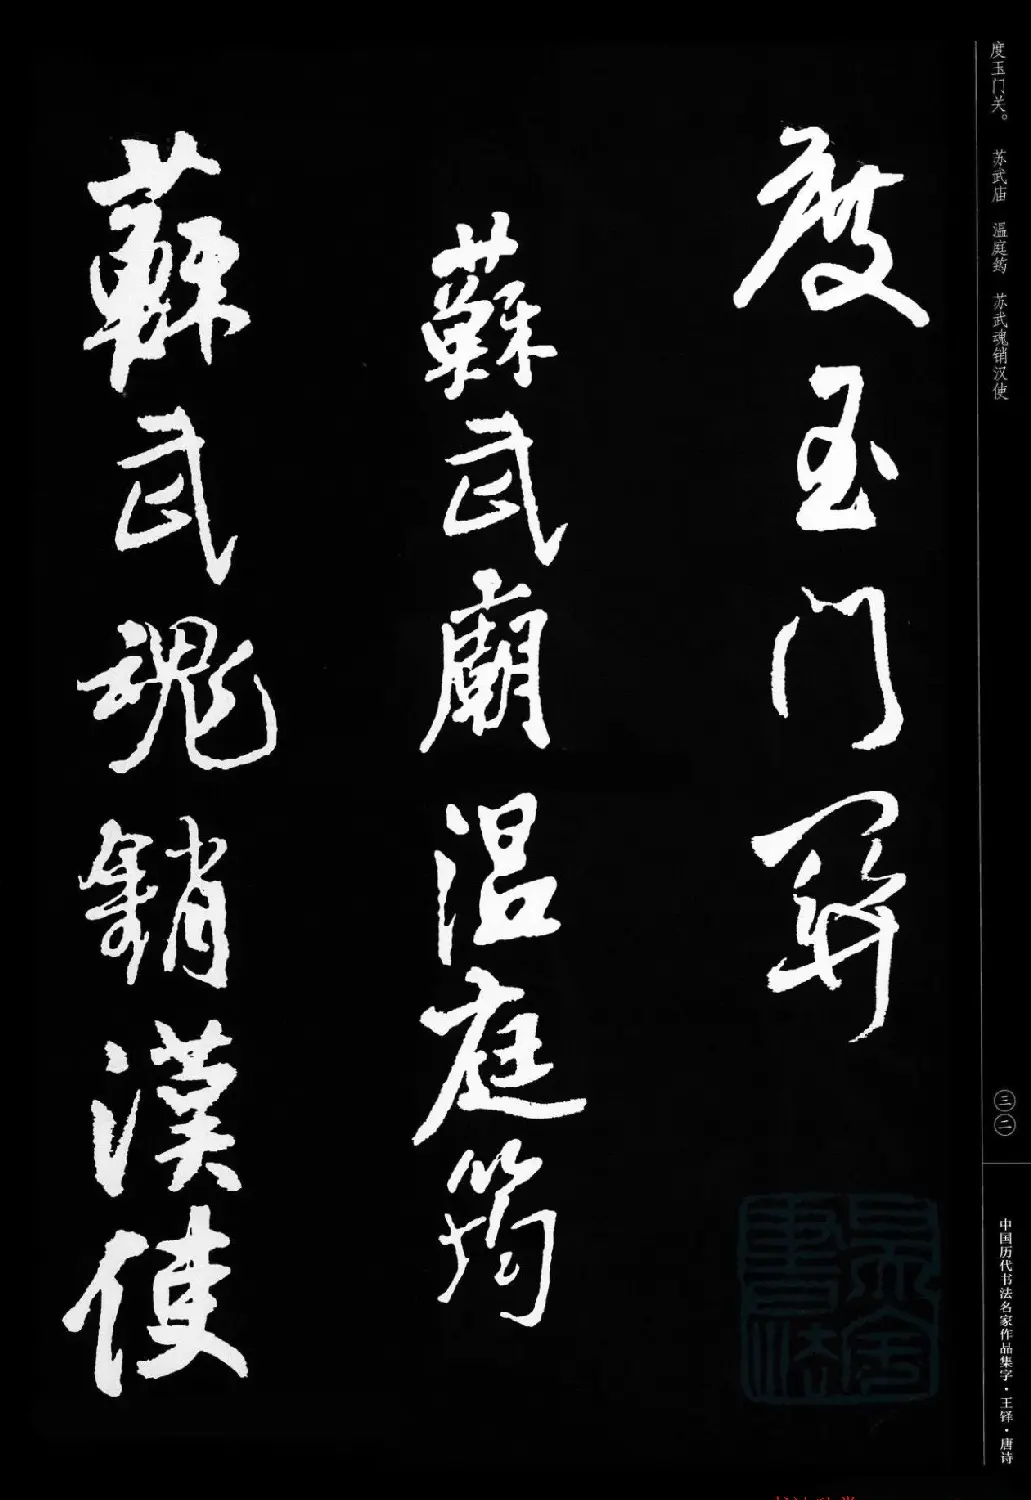 度玉门关。 苏武庙 温庭筠 苏武魂销汉使
度玉门關
蘇武廟温庭筠
蘇武魂銷漢使
三二
中国历代书法名家作品集字·王铎·唐诗